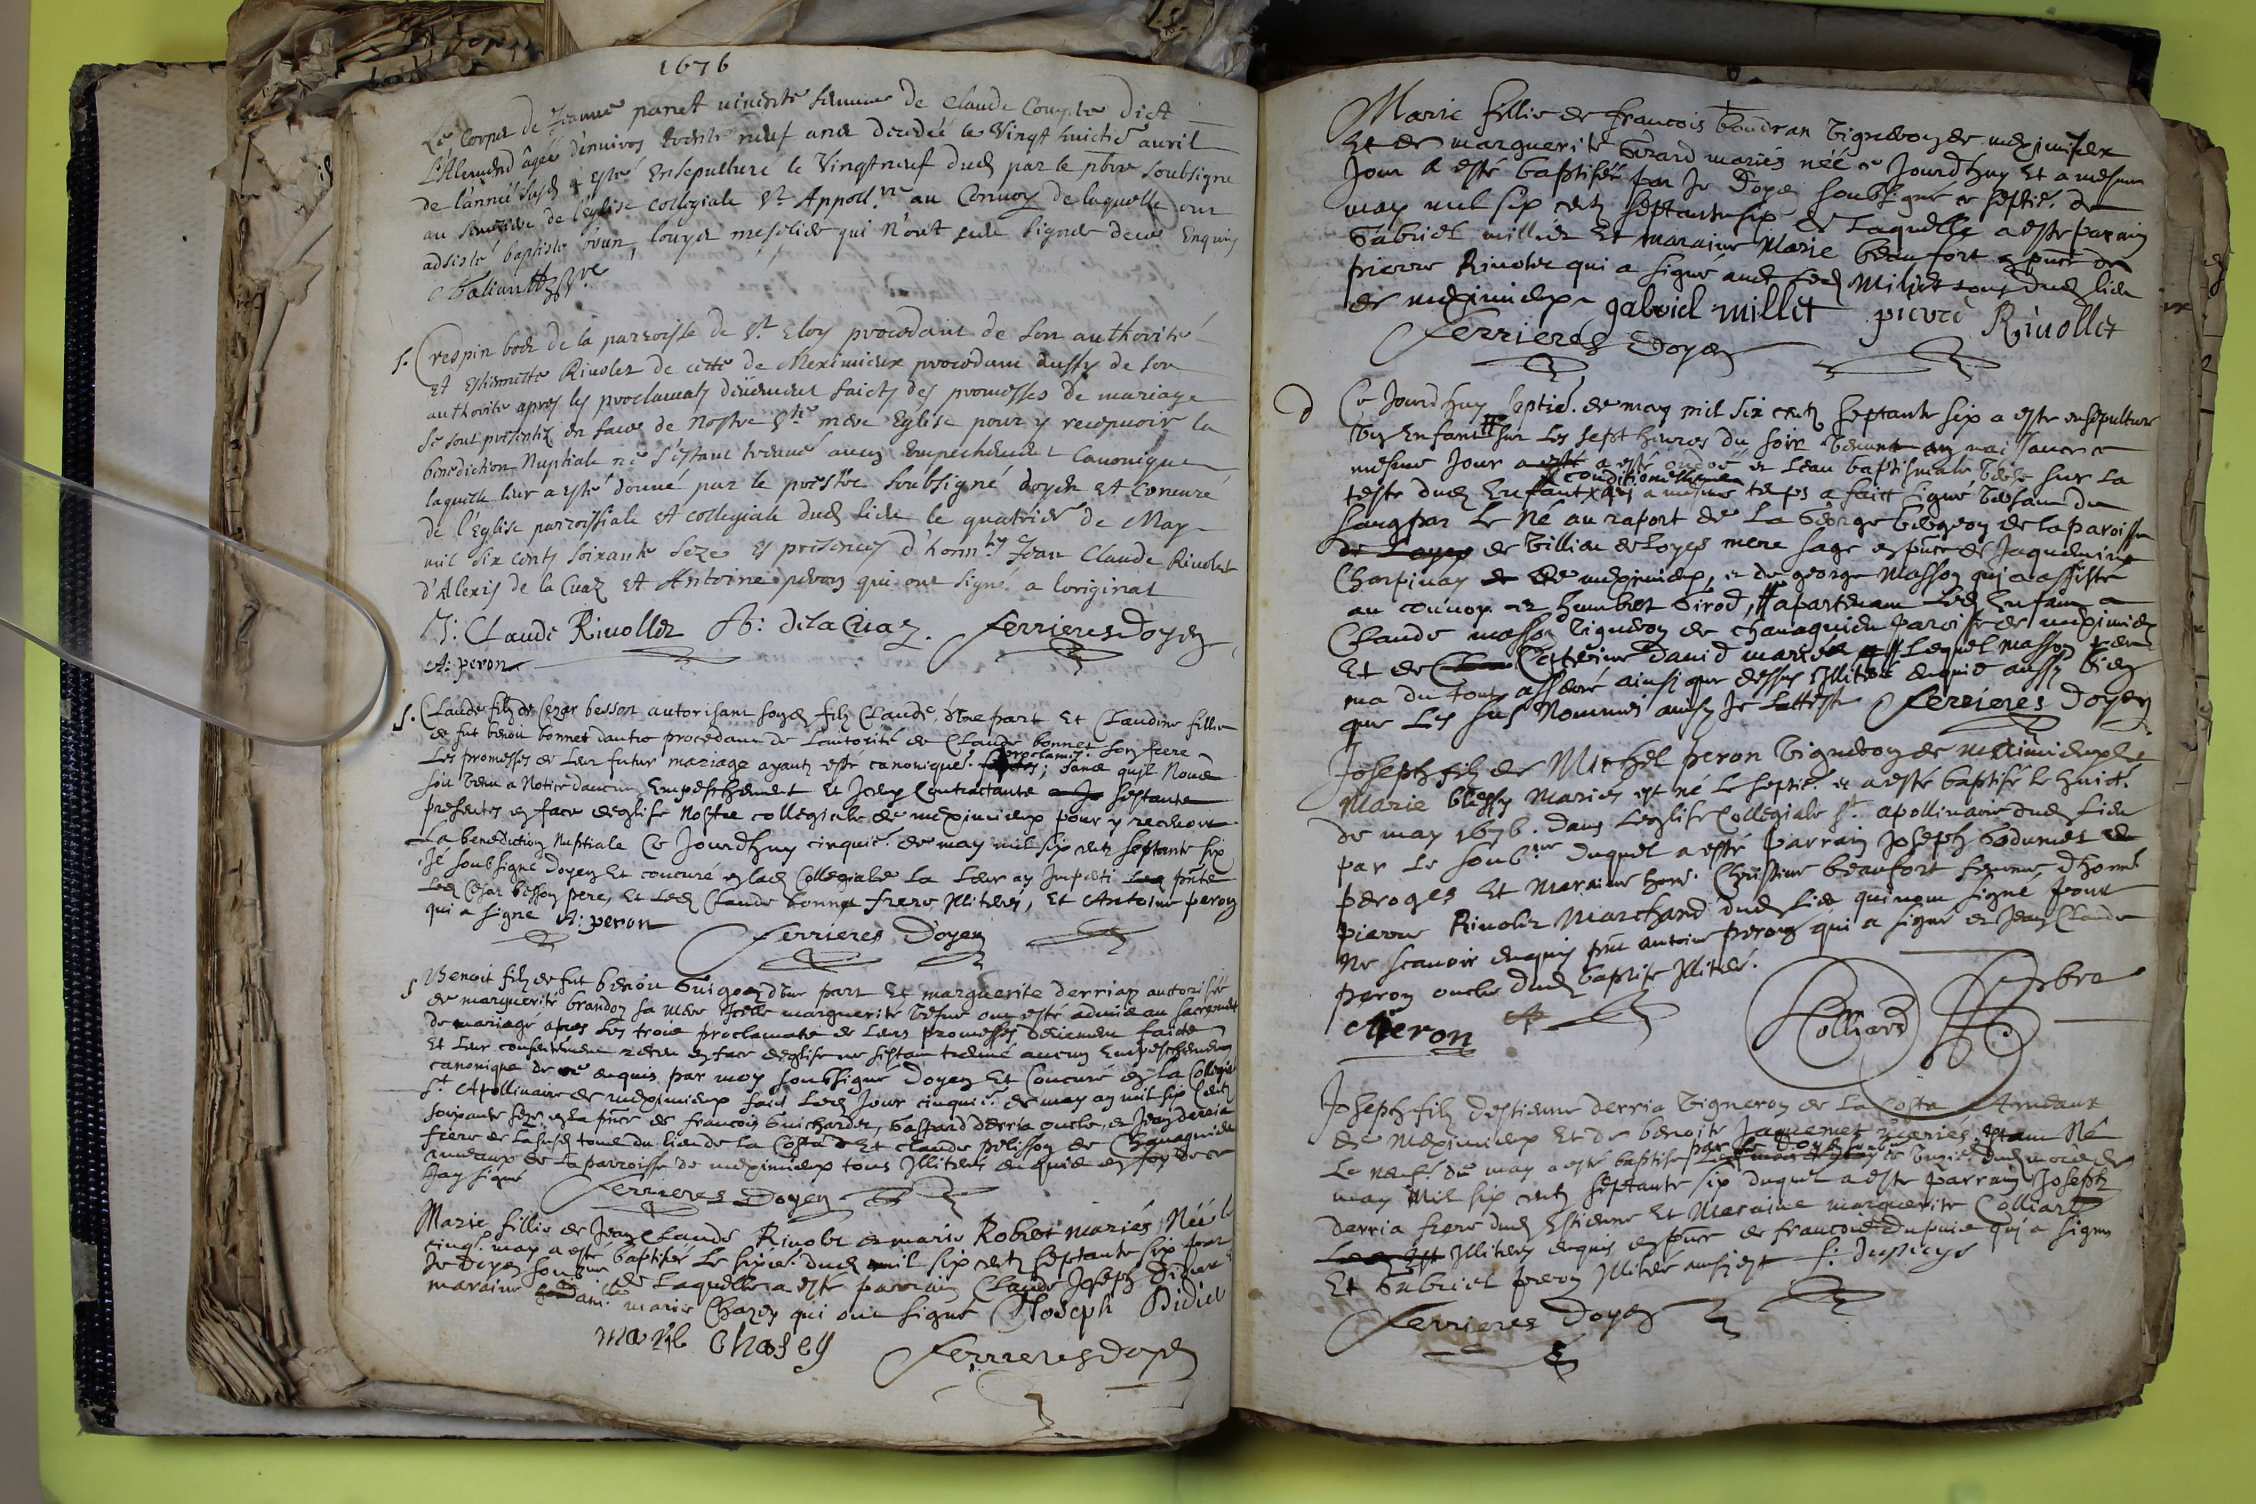 1676
Le Corps de Jeanne panet vivente femme de Claude Compte dict
L'Alemend âgée d'enuiron trente neuf ans decedée le Vingt huictie auril
de l'année susd a esté Ensepulturé le Vingt neuf dud par le pbre soubsigné
au de l'Eglise collegiale St Appoll.re au Convoy de laquelle ont
adsisté baptiste brun, louys mesolier qui n'ont sceu signer de ce Enquis
S. Crespin bon de la parroisse de St Eloy procedant de son authorité
et estiennette Rivolet de cette de Meximieux procedant aussy de son
authorité apres les proclamats deüement faicts des promesses de mariage
se sont presentez en face de nostre Ste mere Eglise pour y recepuoir la
benediction Nuptiale ne s'estant trouué aucun Empechement Canonique
laquelle leur a esté donné par le prestre soubsigné doyen et Concuré
de l'Eglise parroissiale et collegiale dud lieu le quatrie de May
mil six cents soixante seze es presences d'honntes Jean Claude Rivolet
d'Alexis de la Cuaz et Antoine peron qui ont signé a loriginal
J: Claude Rivollet A: dela Cuaz. Ferrieres Doyen
A: peron
S. Claude filz de Cezar besson autorisant soyd filz Claude, d'une part Et Claudine fillie
de fut benoit bonnet dautre procedant de L'autorité de Claude bonnet son frere
Les promesses de Leur futur mariage ayants esté canoniquet. proclamés; sans quil Nous
soit Venu a Notice daucun Empeschement Et Iceux Contractants sestants
presentes en face deglise Nostre collegiale de meximieux pour y recevoir
La benediction Nuptiale Ce Jourdhuy cinquie. de may mil six cents septante six
Je soubsigné Doyen Et concuré en lad Collegiale La Leur ay Imparti pnts
Led Cesar besson pere, Et Led Claude bonnet frere Illiterés, Et Antoine peron
qui a signé A: peron
Ferrieres Doyen
S Benoit filz de fut benoit Guigoz d'une part Et marguerite derriaz autorisée
de marguerite brandon sa Mere Icelle marguerite Vefue ont esté admis au sacrement
de mariage apres Les trois proclamats de Leurs promesses, deüement faicts
Et Leur consentement receu en face deglise ne sestant treuué aucun Empeschement
canonique de ce enquis par moy soubsigné Doyen Et Concuré en La Collegie
St Apollinaire de meximieux faict Led Jour cinquie. de may mil six Cents
soixante seze en La pnce de francois Guichardet, Gaspard derria oncle, et Jean derria
frere de La susd tous du lieu de La Costa Et claude pelisson de Chavagnieu
de La parroisse de meximieux tous Illiterés enquis en foy de ce
Jay signé
Ferrieres Doyen
Marie fillie de Jean Claude Rivolet et marie Robert mariés, Née le
cinqe. may a esté baptisée Le sixie. dud mil six cents septante six par
Je Doyen soubné de Laquelle a esté parrain Claude Joseph Didier
maraine marie Chazey qui ont signé C Joseph Didier
marie Chasey Ferrieres doyen
Marie fillie de francois Goudran Vigneron de meximieux
Et de marguerite Girard mariés née ce Jourdhuy Et a mesme
Jour a esté baptisée par Je Doyen soubsigné ce septie. de
may mil six cents septante six de Laquelle a esté parain
Gabriel millet Et maraine Marie beaufort en pnce de
pierre Rivolet qui a signé auec Led Millet tous dud lieu
de meximieux gabriel millet pierre Rivollet
Ferrieres Doyen
D Ce Jourdhuy septie. de may mil six cents septante six a esté ensepulturé
Un Enfant sur Les sept heures du soir Venant au naissance ce
mesme Jour a esté ondoé et Leau baptismale Versé sur La
conditionellement
teste dud Enfant qui a mesme temps a faict signe Versant du
sang par Le Né au raport de La George Vegeon de la paroisse
de Villieu de Loyes mere sage en pnce de Jaquemine
Charpinay de meximieux, et de george Masson qui a assisté
au convoy. et humbert Girod, apartenant Led Enfant a
Claude masson Vigneron de chavagnieu paroisse de meximieux
Et de Catherine david mariés Lequel masson
ma du tout asseuré ainsi que dessus Illiteré enquis aussy bien
que Les sus Nommés ainsy Je L'atteste Ferrieres Doyen
Joseph filz de Michel peron Vigneron de meximieux et
Marie blessy Mariés est né Le septie. et a esté baptisé le huictie.
de may 1676. dans Leglise Collegiale St. apollinaire dud Lieu
par Le soubné duquel a esté parrain Joseph
peroges Et maraine hono. Christine beaufort femme, dhonne
pierre Rivolet Marchand dud Lieu qui nont signé pour
ne scauoir enquis pnt antoine peron qui a signé et Jean Claude
peron oncle dud baptisé Illiteré.
A peron Colliard pbre
Joseph filz destienne derria Vigneron de La Costa
de meximieux Et de benoite Jaquemet mariés, Estant Né
Le neufe. de may a esté baptisé par Le Doyen
may Mil six cents septante six duquel a esté parrain Joseph
derria frere dud Estienne Et Maraine marguerite Colliard
Illiterés enquis en pnce de francois dupuis qui a signé
Et Gabriel peron Illiteré F. Dupuys
Ferrieres Doyen